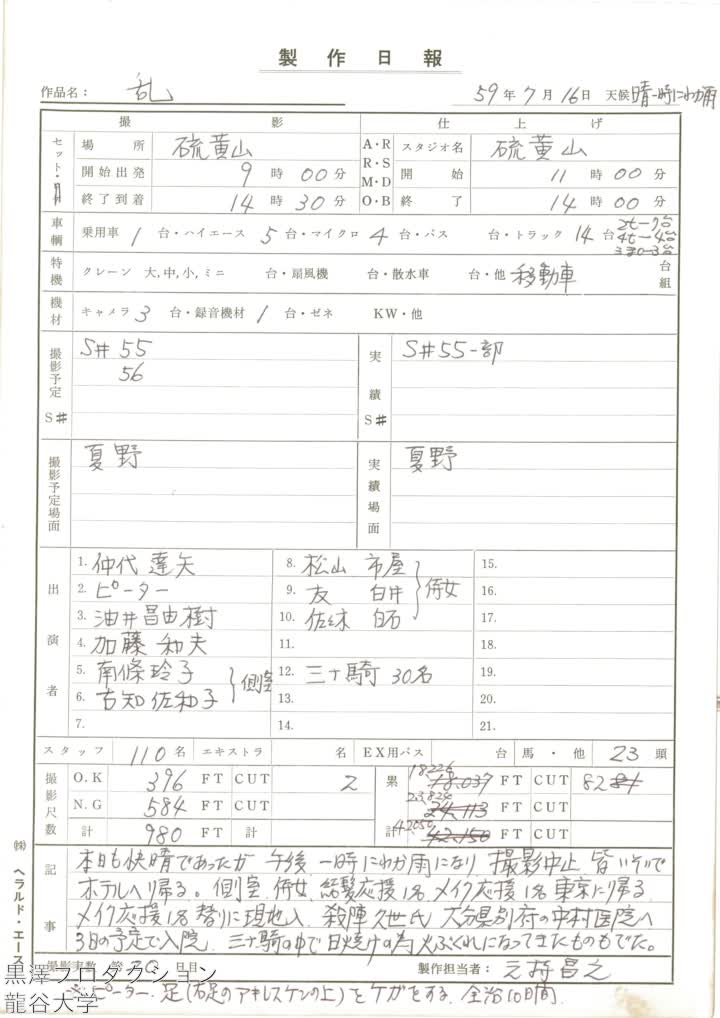 製作日報
作品名： 乱
59年7月16日 天候 晴一時にわか雨
撮影 仕上げ
セット・ロケ 場所 硫黄山 A・R R・S M・D O・B スタジオ名 硫黄山
開始出発 9時00分 開始 11時00分
終了到着 14時30分 終了 14時00分
車輌 乗用車 1 台・ハイエース 5 台・マイクロ 4 台・バス 台・トラック 14 台 2t-7台 4t-4台
特機 クレーン 大,中,小,ミニ 台・扇風機 台・散水車 台・他 移動車 台組
機材 キャメラ 3 台・録音機材 1 台・ゼネ KW・他
撮影予定 S# S#55 実績 S# S#55一部
56
撮影予定場面 夏野 実績場面 夏野
出演者
1. 仲代達矢 8. 松山 市屋 15.
2. ピーター 9. 友 臼井 侍女 16.
3. 油井昌由樹 10. 佐々木 白石 17.
4. 加藤和夫 11. 18.
5. 南條玲子 側室 12. 三十騎 30名 19.
6. 古知佐和子 13. 20.
7. 14. 21.
スタッフ 110名 エキストラ 名 EX用バス 台 馬・他 23頭
撮影尺数 O.K 396 FT CUT 2 累計 18226 18.037 FT CUT 82 81
N.G 584 FT CUT 23,824 24.113 FT CUT
計 980 FT 42050 42.150 FT CUT
記事 本日も快晴であったが 午後 一時にわか雨になり 撮影中止 皆いそいで
ホテルへ帰る。側室、侍女、結髪応援1名、メイク応援1名 東京に帰る
メイク応援1名 替りに現地入 殺陣 久世氏 大分県別府の中村医院へ
3日の予定で入院 三十騎の中で日焼けの為火ぶくれになってきたものもでた。
撮影実数 第 日目 製作担当者：
※ピーター、足(右足のアキレスケンの上)をケガをする 全治10日間
㈱ ヘラルド・エース
黒澤プロダクション
龍谷大学